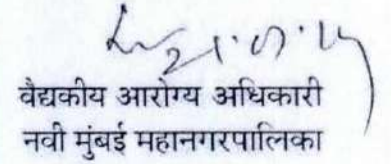 वैद्यकीय आरोग्य अधिकारी
नवी मुंबई महानगरपालिका